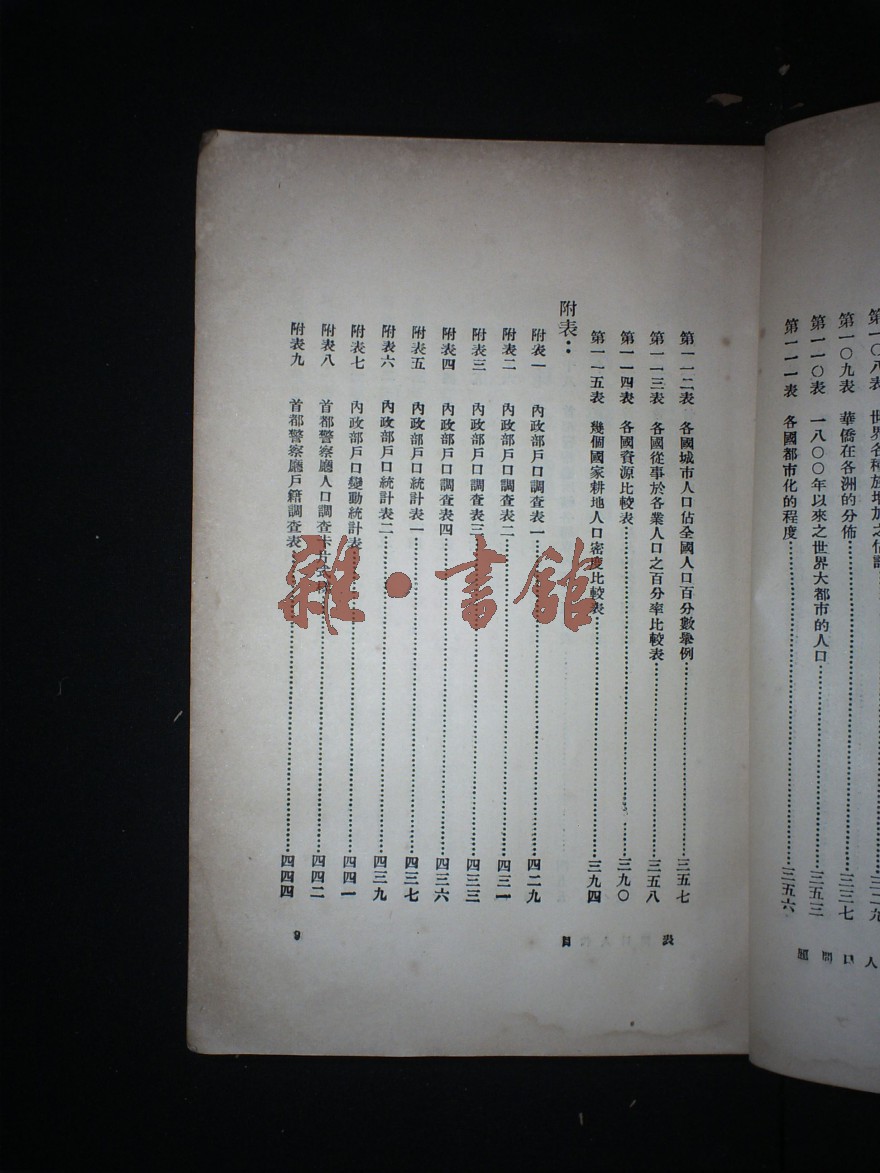 第一〇八表　世界各種族增加之估計…………三二九
第一〇九表　華僑在各洲的分佈…………三三七
第一一〇表　一八〇〇年以來之世界大都市的人口…………三五三
第一一一表　各國都市化的程度…………三五六
人口問題
第一一二表　各國城市人口佔全國人口百分數舉例…………三五七
第一一三表　各國從事於各業人口之百分率比較表…………三五八
第一一四表　各國資源比較表…………三九〇
第一一五表　幾個國家耕地人口密度比較表…………三九四
附表：
附表一　內政部戶口調查表一…………四二九
附表二　內政部戶口調查表二…………四三一
附表三　內政部戶口調查表三…………四三三
附表四　內政部戶口調查表四…………四三六
附表五　內政部戶口統計表一…………四三七
附表六　內政部戶口統計表二…………四三九
附表七　內政部戶口變動統計表…………四四一
附表八　首都警察廳人口調查卡片式樣…………四四二
附表九　首都警察廳戶籍調查表…………四四四
表目
9
雜·書館